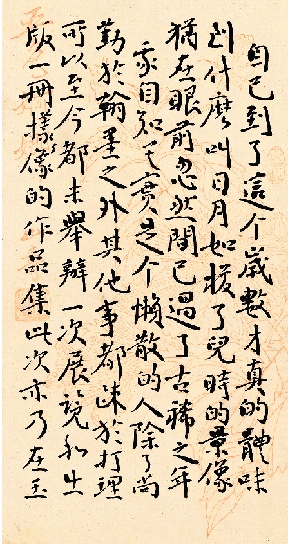 自己到了這个歲數才真的體味
到什麽叫日月如梭了兒時的景像
猶在眼前忽然間已過了古稀之年
我自知其實是个懒散的人除了尚
勤於翰墨之外其他事都疎於打理
可以至今都未舉辦一次展覧和出
版一冊樣像的作品集此次亦乃在玉